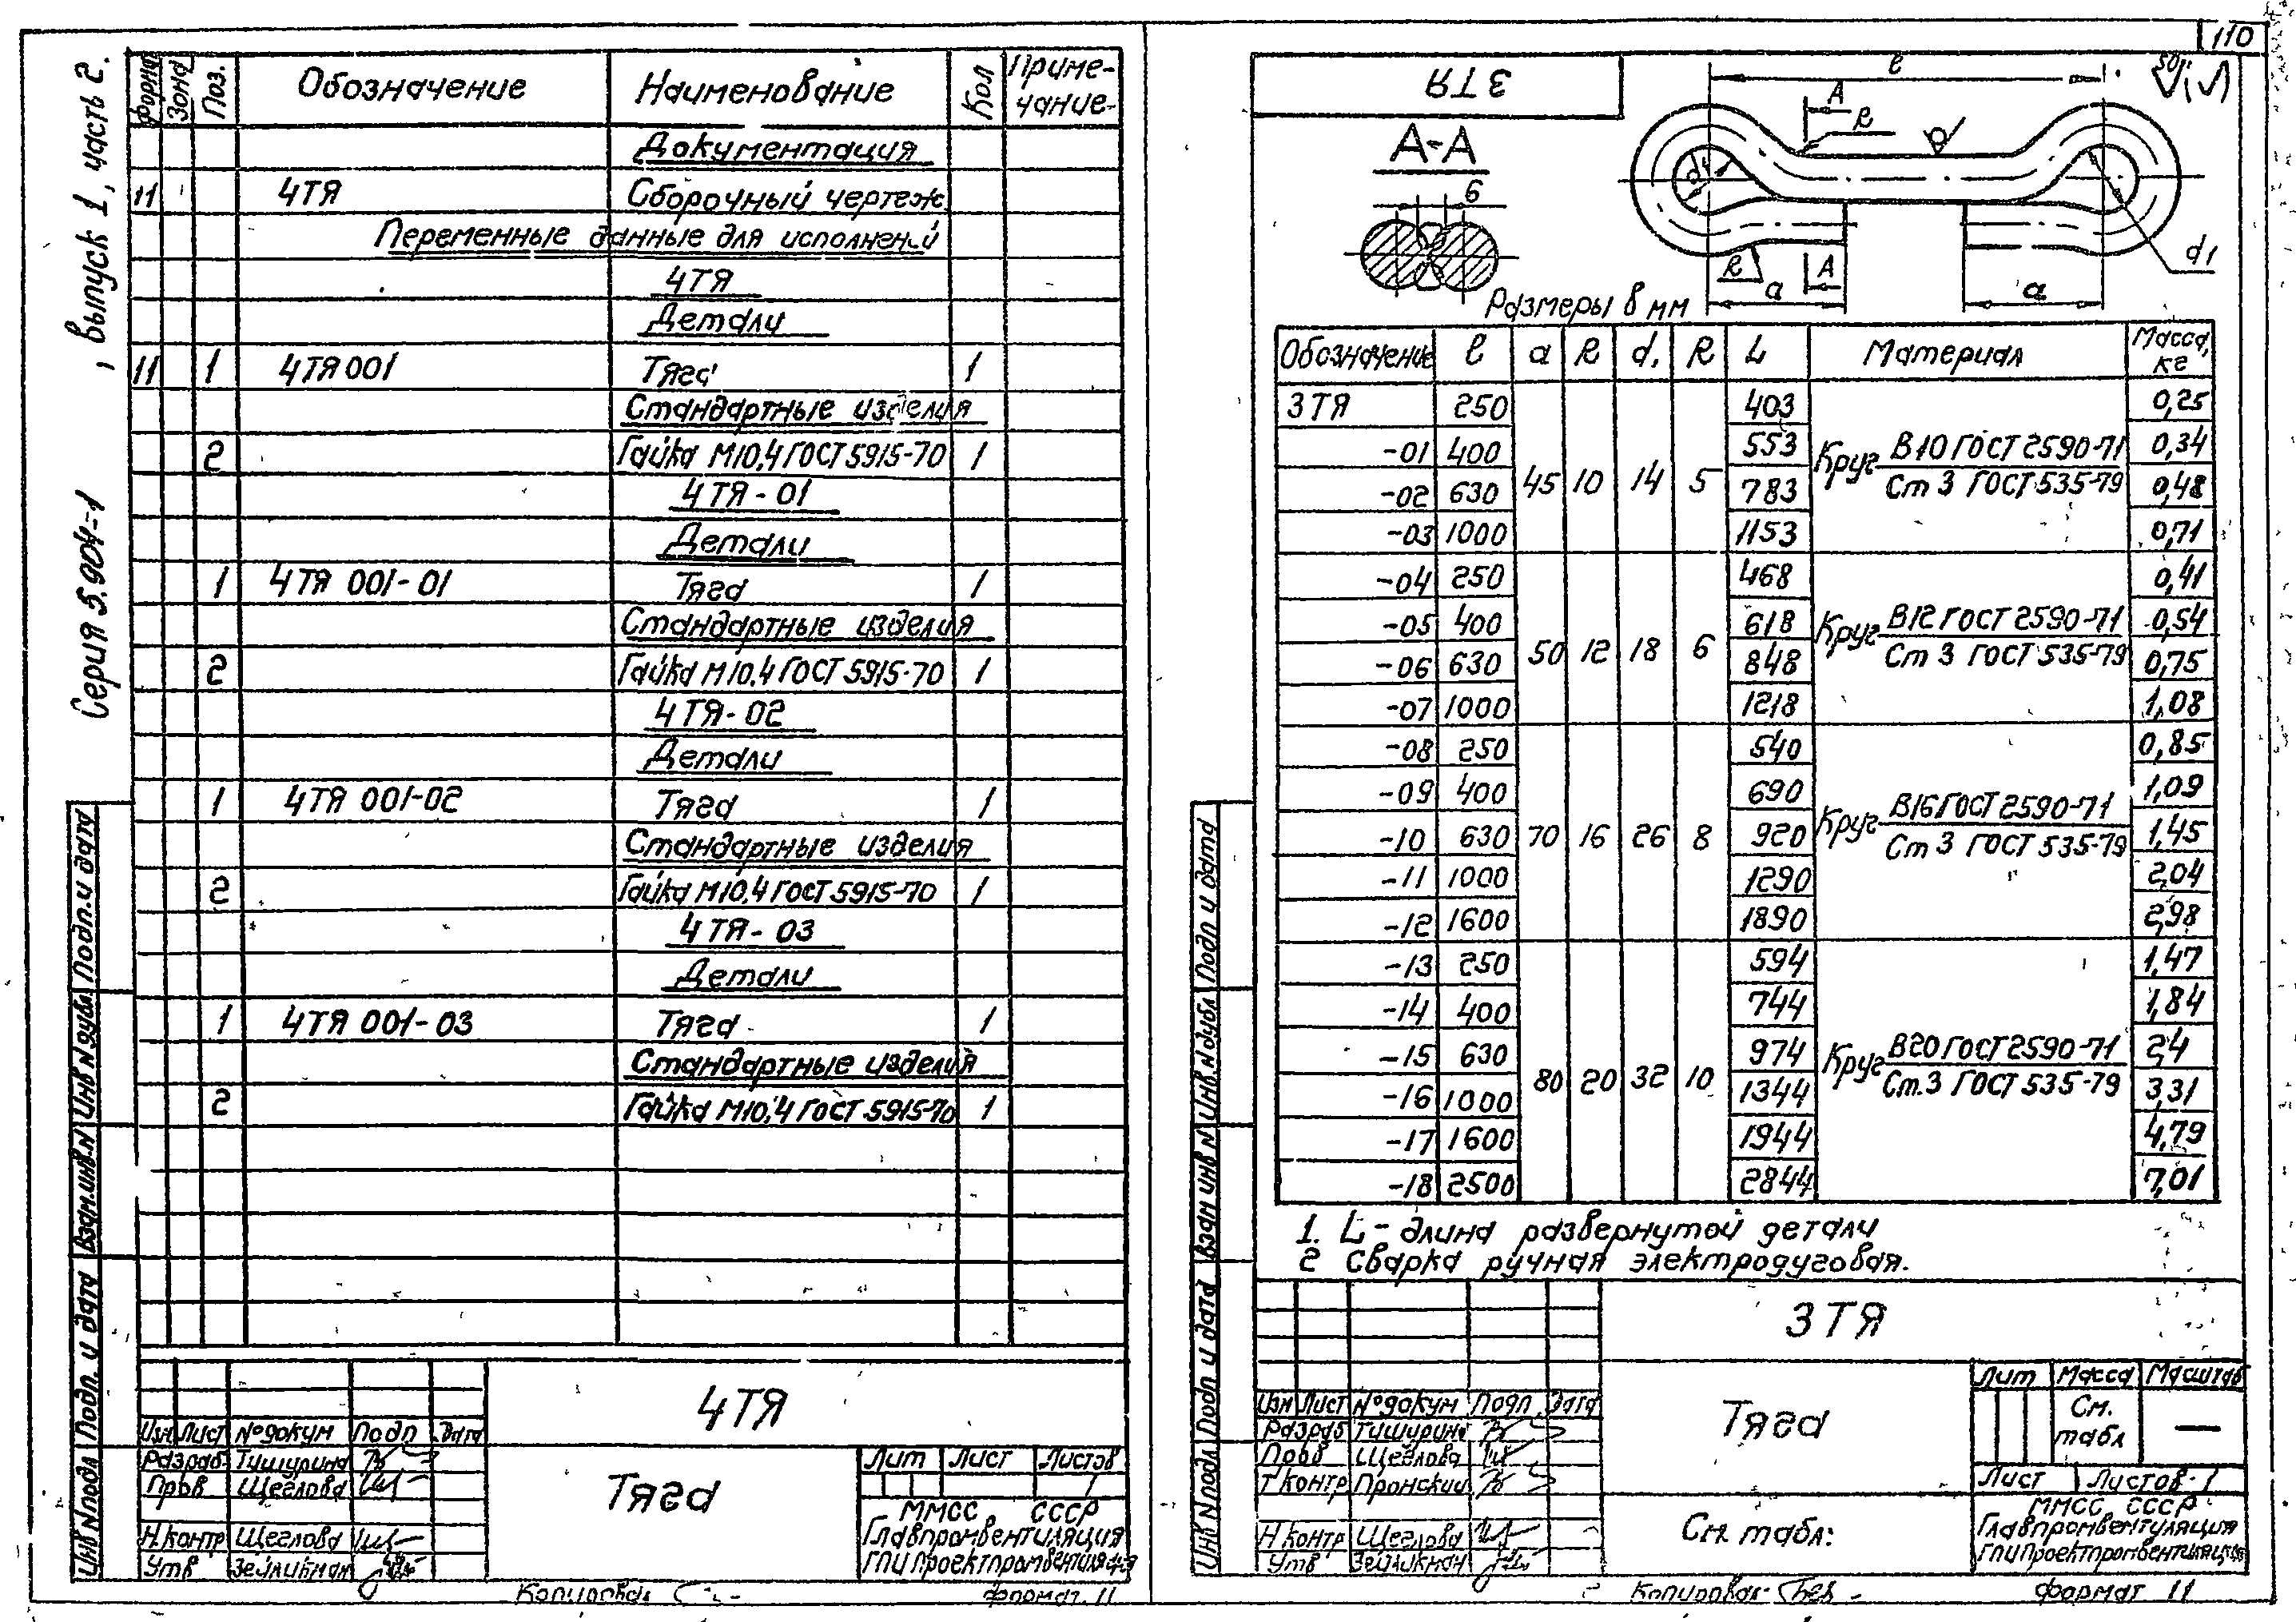 110
Серия 5.904-1 , выпуск 1, часть 2.
Форма Зона Поз. Обозначение Наименование Кол Приме-
чание
Документация
11 4ТЯ Сборочный чертеж
Переменные данные для исполнений
4ТЯ
Детали
11 1 4ТЯ 001 Тяга 1
Стандартные изделия
2 Гайка М10.4 ГОСТ 5915-70 1
4ТЯ-01
Детали
1 4ТЯ 001-01 Тяга 1
Стандартные изделия
2 Гайка М10.4 ГОСТ 5915-70 1
4ТЯ-02
Детали
1 4ТЯ 001-02 Тяга 1
Стандартные изделия
2 Гайка М10.4 ГОСТ 5915-70 1
4ТЯ-03
Детали
1 4ТЯ 001-03 Тяга 1
Стандартные изделия
2 Гайка М10.4 ГОСТ 5915-70 1
Инв N подл Подп. и дата Взам. инв. N Инв N дубл Подп. и дата
4ТЯ
Изм Лист N° докум Подп Дата
Разраб. Тишурина
Пров Щеглова
Н. контр Щеглова
Утв Зейликман
Тяга
Лит Лист Листов
1
ММСС СССР
Главпромвентиляция
ГПИ Проектпромвентиляция
Копировал формат 11
3ТЯ
А-А
б
l
А
R
d1
d1
R
А
а
а
50
Размеры в мм
Обозначение l а R d₁ R L Материал Масса, кг
3ТЯ 250 403 0,25
-01 400 553 0,34
-02 630 783 0,48
-03 1000 1153 0,71
45 10 14 5 Круг В10 ГОСТ 2590-71
Ст 3 ГОСТ 535-79
-04 250 468 0,41
-05 400 618 0,54
-06 630 848 0,75
-07 1000 1218 1,08
50 12 18 6 Круг В12 ГОСТ 2590-71
Ст 3 ГОСТ 535-79
-08 250 540 0,85
-09 400 690 1,09
-10 630 920 1,45
-11 1000 1290 2,04
-12 1600 1890 2,98
70 16 26 8 Круг В16 ГОСТ 2590-71
Ст 3 ГОСТ 535-79
-13 250 594 1,47
-14 400 744 1,84
-15 630 974 2,4
-16 1000 1344 3,31
-17 1600 1944 4,79
-18 2500 2844 7,01
80 20 32 10 Круг В20 ГОСТ 2590-71
Ст. 3 ГОСТ 535-79
1. L - длина развернутой детали
2 Сварка ручная электродуговая.
Инв N подл Подп и дата Взам инв N Инв. N дубл Подп и дата
3ТЯ
Изм Лист N° докум Подп Дата
Разраб Тишурина
Пров Щеглова
Т контр Пронский
Н. контр Щеглова
Утв Зейликман
Тяга
См. табл.
Лит Масса Масштаб
См. табл —
Лист Листов 1
ММСС СССР
Главпромвентиляция
ГПИ Проектпромвентиляция
Копировал формат 11